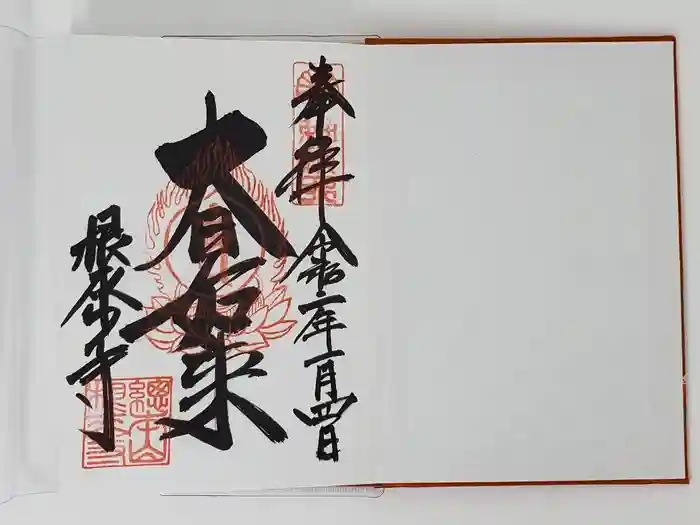 奉拝 令和二年一月四日
大日如来
根来寺